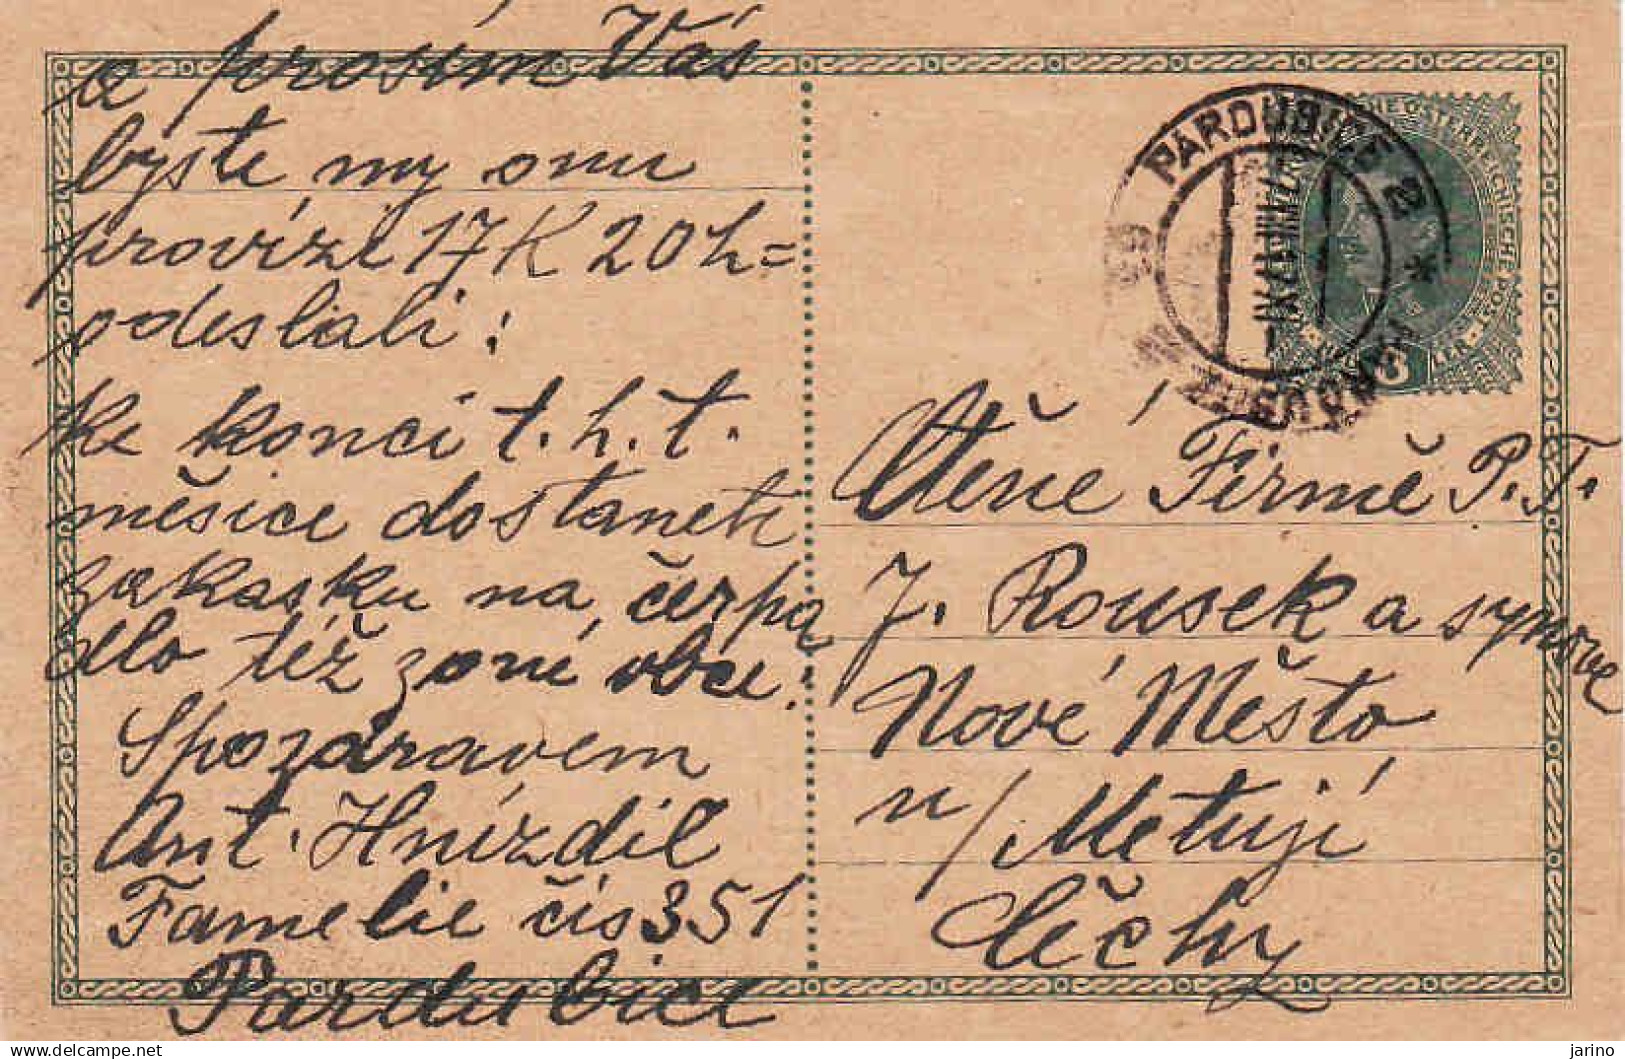 a prosím Vás
byste my onu
provízi 17 K 20 h =
odeslali:
ke konci t. h. t.
měsice dostaneti
zakasku na, čerpa
dlo též zoné obce.
Spozdravem
Ant. Hnízdil
Famelie čís 351
Pardubice
PARDUBICE 2
8
Ctěné Firmě P. T.
J. Rousek a synové
Nové Město
n/ Metují
Čěchy
delcampe.net
jarino